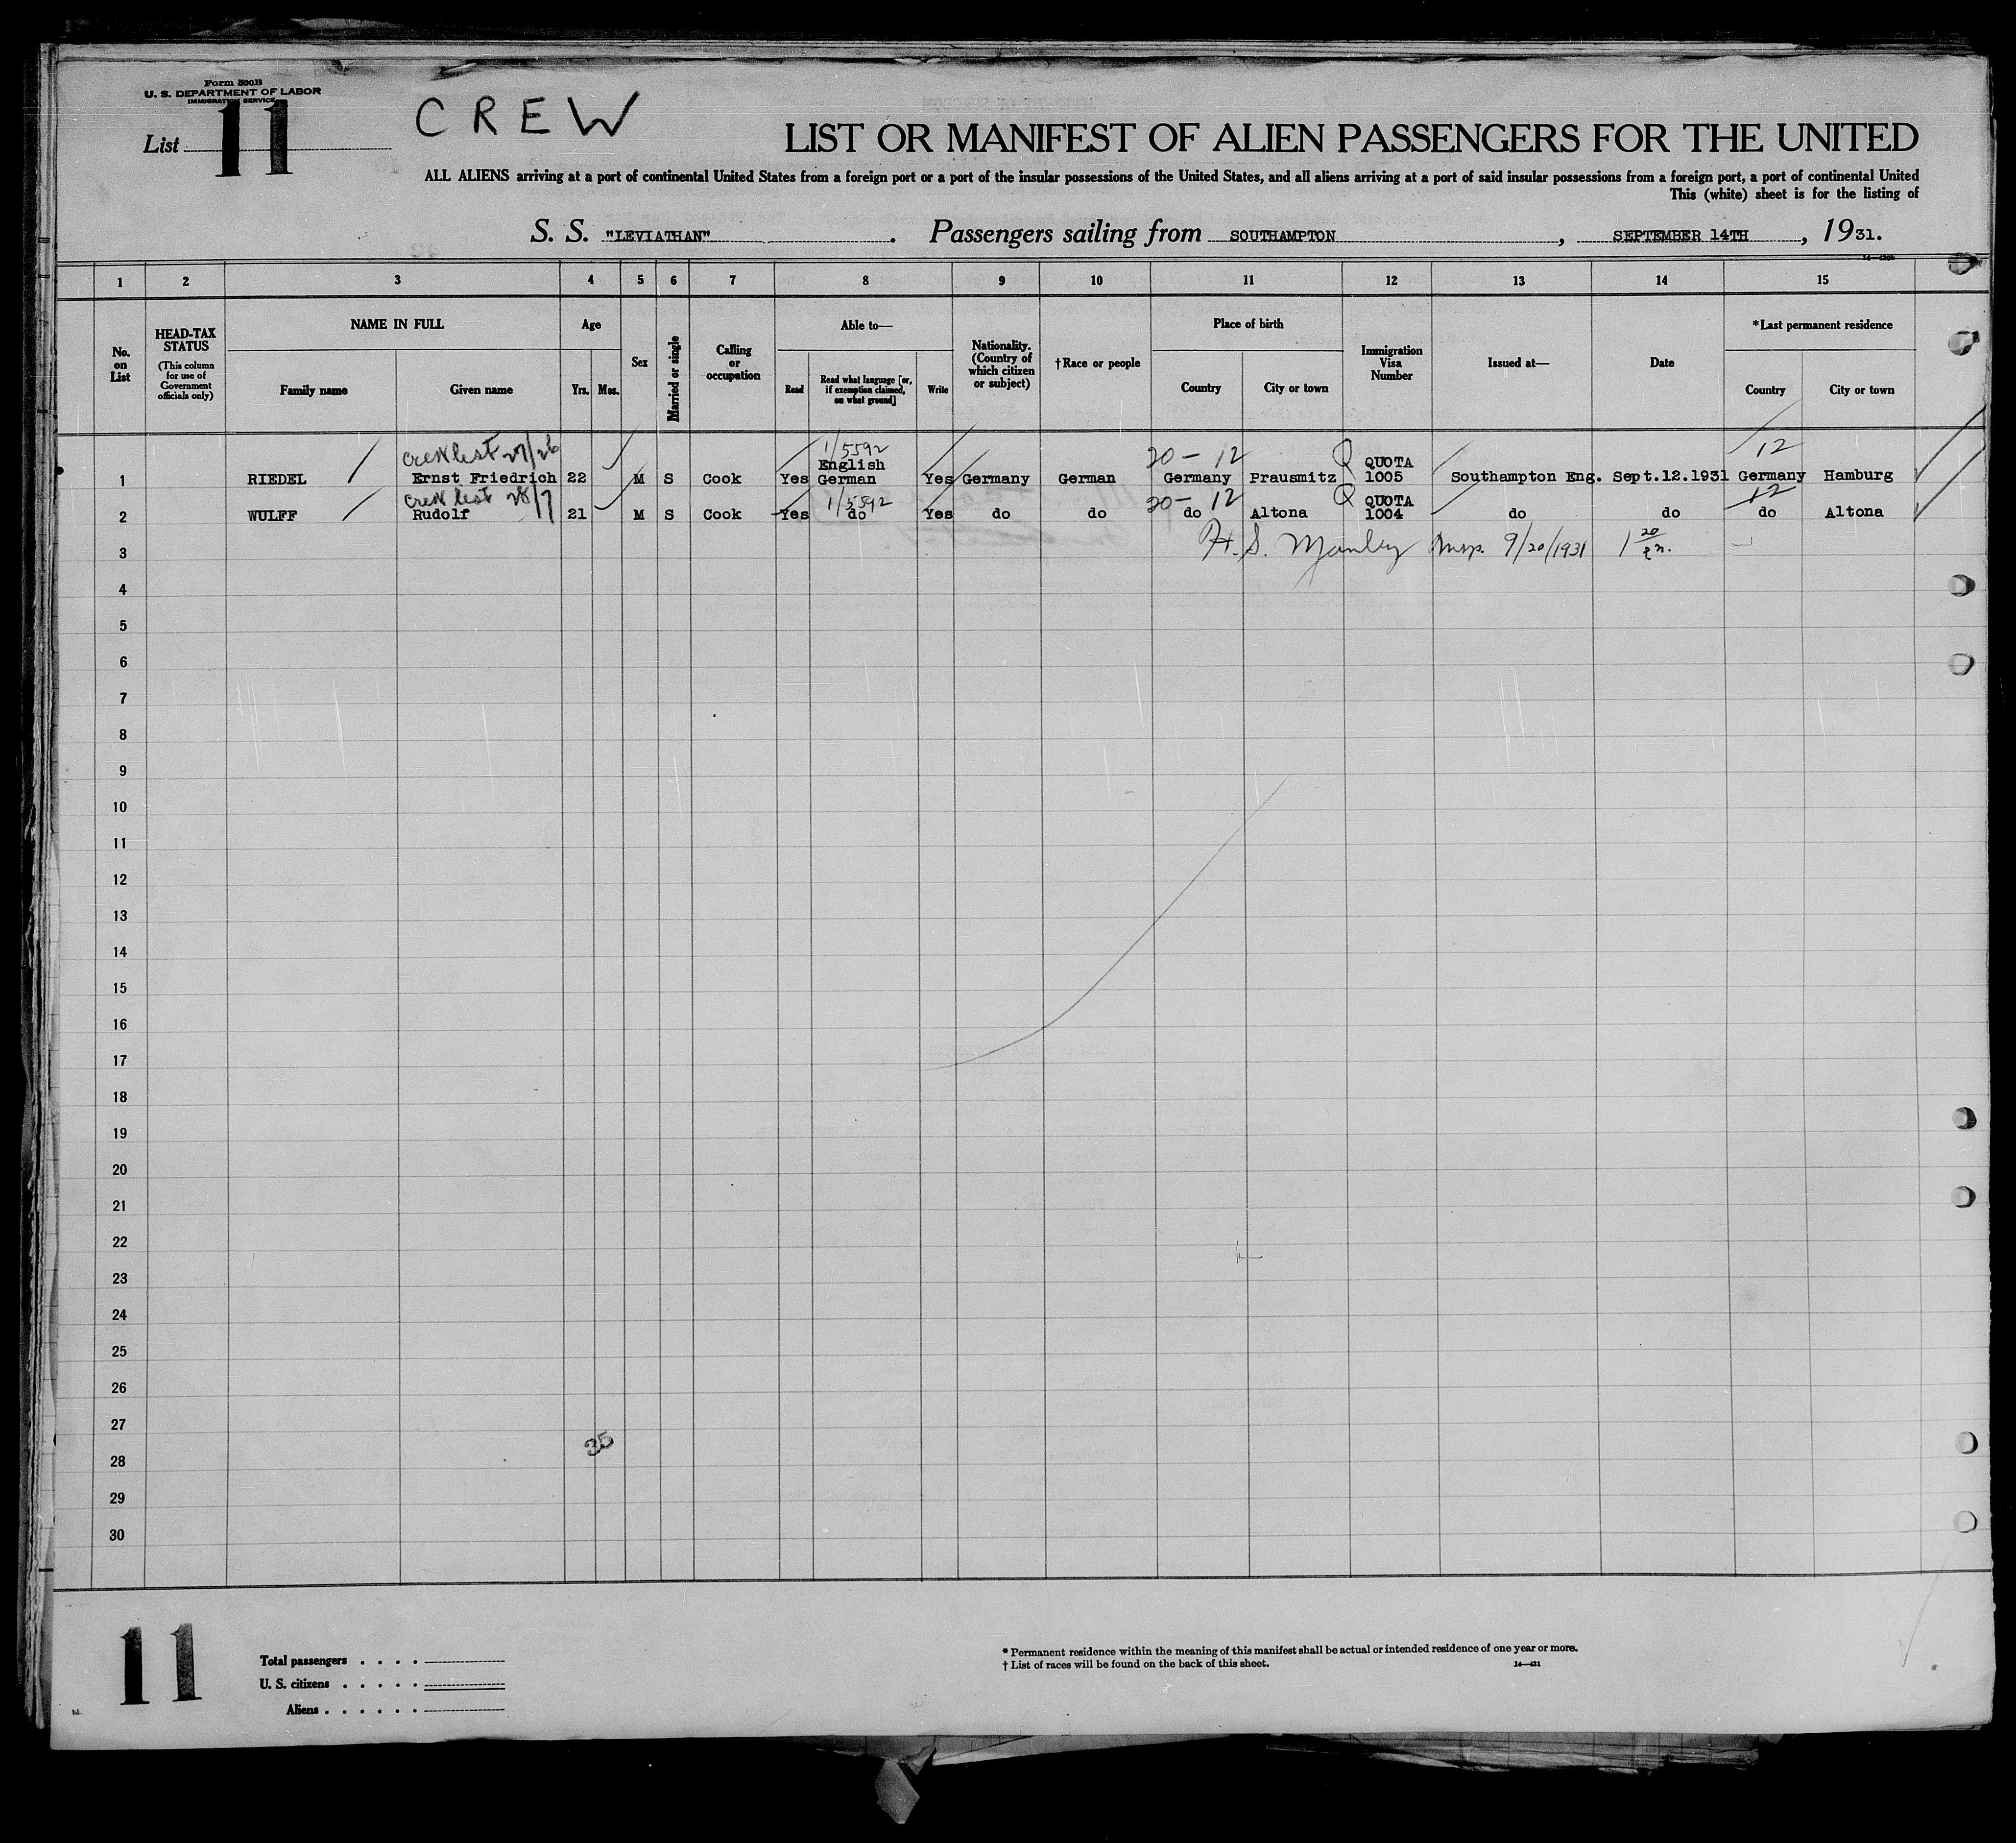 Form 500B
U. S. DEPARTMENT OF LABOR
IMMIGRATION SERVICE
List 11
CREW
LIST OR MANIFEST OF ALIEN PASSENGERS FOR THE UNITED
ALL ALIENS arriving at a port of continental United States from a foreign port or a port of the insular possessions of the United States, and all aliens arriving at a port of said insular possessions from a foreign port, a port of continental United
This (white) sheet is for the listing of
S. S. "LEVIATHAN" . Passengers sailing from SOUTHAMPTON , SEPTEMBER 14TH , 1931.
1 2 3 4 5 6 7 8 9 10 11 12 13 14 15
No. on List
HEAD-TAX STATUS
(This column for use of Government officials only)
NAME IN FULL
Family name Given name
Age
Yrs. Mos.
Sex
Married or single
Calling or occupation
Able to—
Read Read what language [or, if exemption claimed, on what ground] Write
Nationality. (Country of which citizen or subject)
†Race or people
Place of birth
Country City or town
Immigration Visa Number
Issued at—
Date
*Last permanent residence
Country City or town
crew list 27/26 1/5592 20 - 12 Q 12
1 RIEDEL Ernst Friedrich 22 M S Cook Yes English German Yes Germany German Germany Prausmitz QUOTA 1005 Southampton Eng. Sept.12.1931 Germany Hamburg
crew list 28/7 1/5592 20 - 12 Q 12
2 WULFF Rudolf 21 M S Cook Yes do Yes do do do Altona QUOTA 1004 do do do Altona
H. S. Manley Insp. 9/20/1931 1 20
3
4
5
6
7
8
9
10
11
12
13
14
15
16
17
18
19
20
21
22
23
24
25
26
27
35
28
29
30
11
Total passengers . . . .
U. S. citizens . . . . .
Aliens . . . . . .
* Permanent residence within the meaning of this manifest shall be actual or intended residence of one year or more.
† List of races will be found on the back of this sheet.
14—421